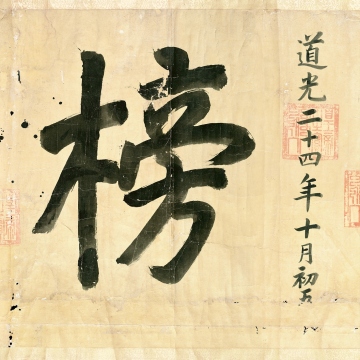 道光二十四年十月初五
榜